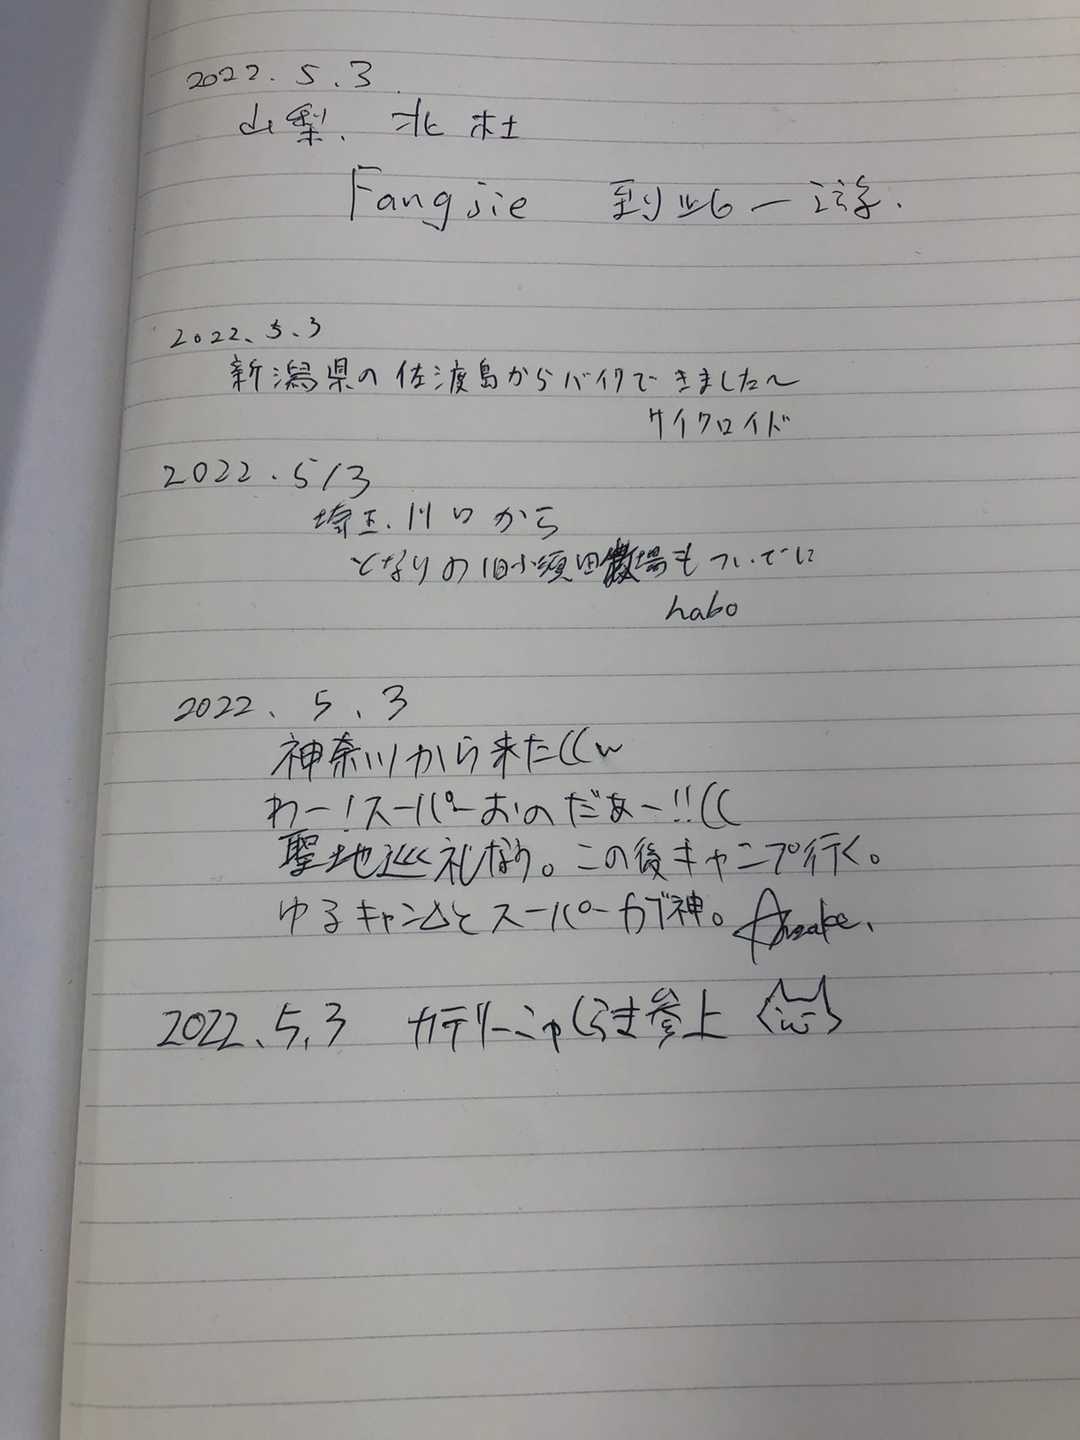 2022. 5. 3
山梨. 北杜
Fangjie 到此一游.
2022. 5. 3
新潟県の佐渡島からバイクできました〜
サイクロイド
2022. 5/3
埼玉. 川口から
となりの旧小須田牧場もついでに
habo
2022. 5. 3
神奈川から来た((w
わー!スーパーおのだぁー!!((
聖地巡礼なう。この後キャンプ行く。
ゆるキャン△とスーパーカブ神。
2022. 5. 3 カテリーニャくらま参上